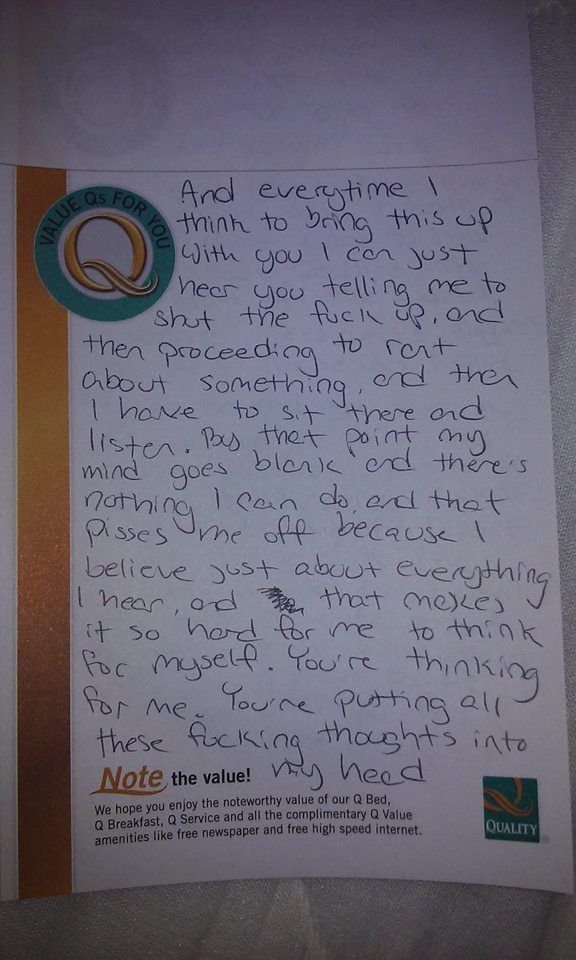 VALUE Qs FOR YOU
Q
And everytime I
think to bring this up
with you I can just
hear you telling me to
shut the fuck up, and
then proceeding to rant
about something, and then
I have to sit there and
listen. By that point my
mind goes blank and there's
nothing I can do, and that
pisses me off because I
believe just about everything
I hear, and that makes
it so hard for me to think
for myself. You're thinking
for me. You're putting all
these fucking thoughts into
my head
Note the value!
We hope you enjoy the noteworthy value of our Q Bed,
Q Breakfast, Q Service and all the complimentary Q Value
amenities like free newspaper and free high speed internet.
QUALITY